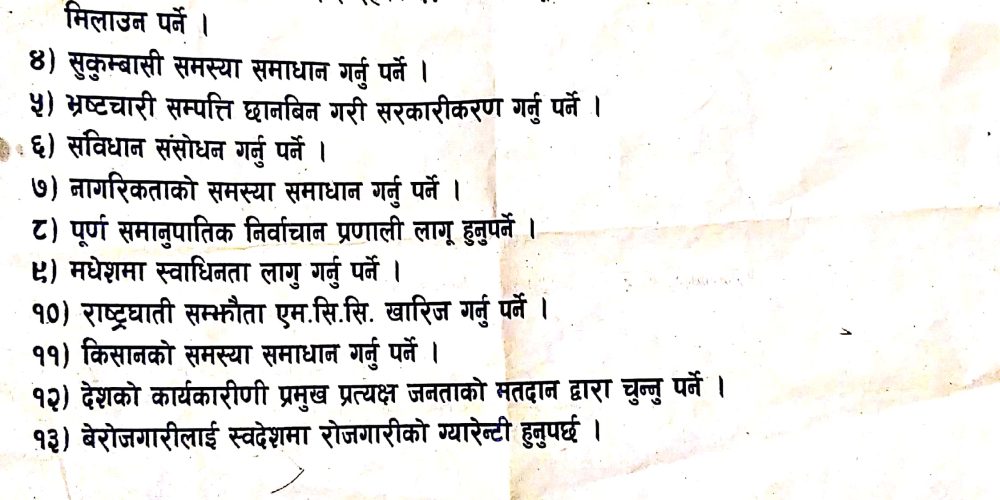 मिलाउन पर्ने ।
४) सुकुम्बासी समस्या समाधान गर्नु पर्ने ।
५) भ्रष्टचारी सम्पत्ति छानबिन गरी सरकारीकरण गर्नु पर्ने ।
६) संविधान संसोधन गर्नु पर्ने ।
७) नागरिकताको समस्या समाधान गर्नु पर्ने ।
८) पूर्ण समानुपातिक निर्वाचान प्रणाली लागू हुनुपर्ने ।
९) मधेशमा स्वाधिनता लागु गर्नु पर्ने ।
१०) राष्ट्रघाती सम्झौता एम.सि.सि. खारिज गर्नु पर्ने ।
११) किसानको समस्या समाधान गर्नु पर्ने ।
१२) देशको कार्यकारीणी प्रमुख प्रत्यक्ष जनताको मतदान द्वारा चुन्नु पर्ने ।
१३) बेरोजगारीलाई स्वदेशमा रोजगारीको ग्यारेन्टी हुनुपर्छ ।